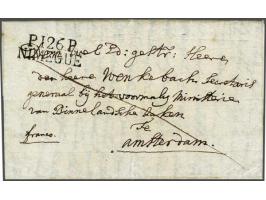 P.126.P.
NIMEGUE
Wel Edigestr: Heere,
den heere Wenkebach Secretaris
generaal bij het voormalig Ministerie
van Binnelandsche Zaken
Te
franco. Amsterdam.